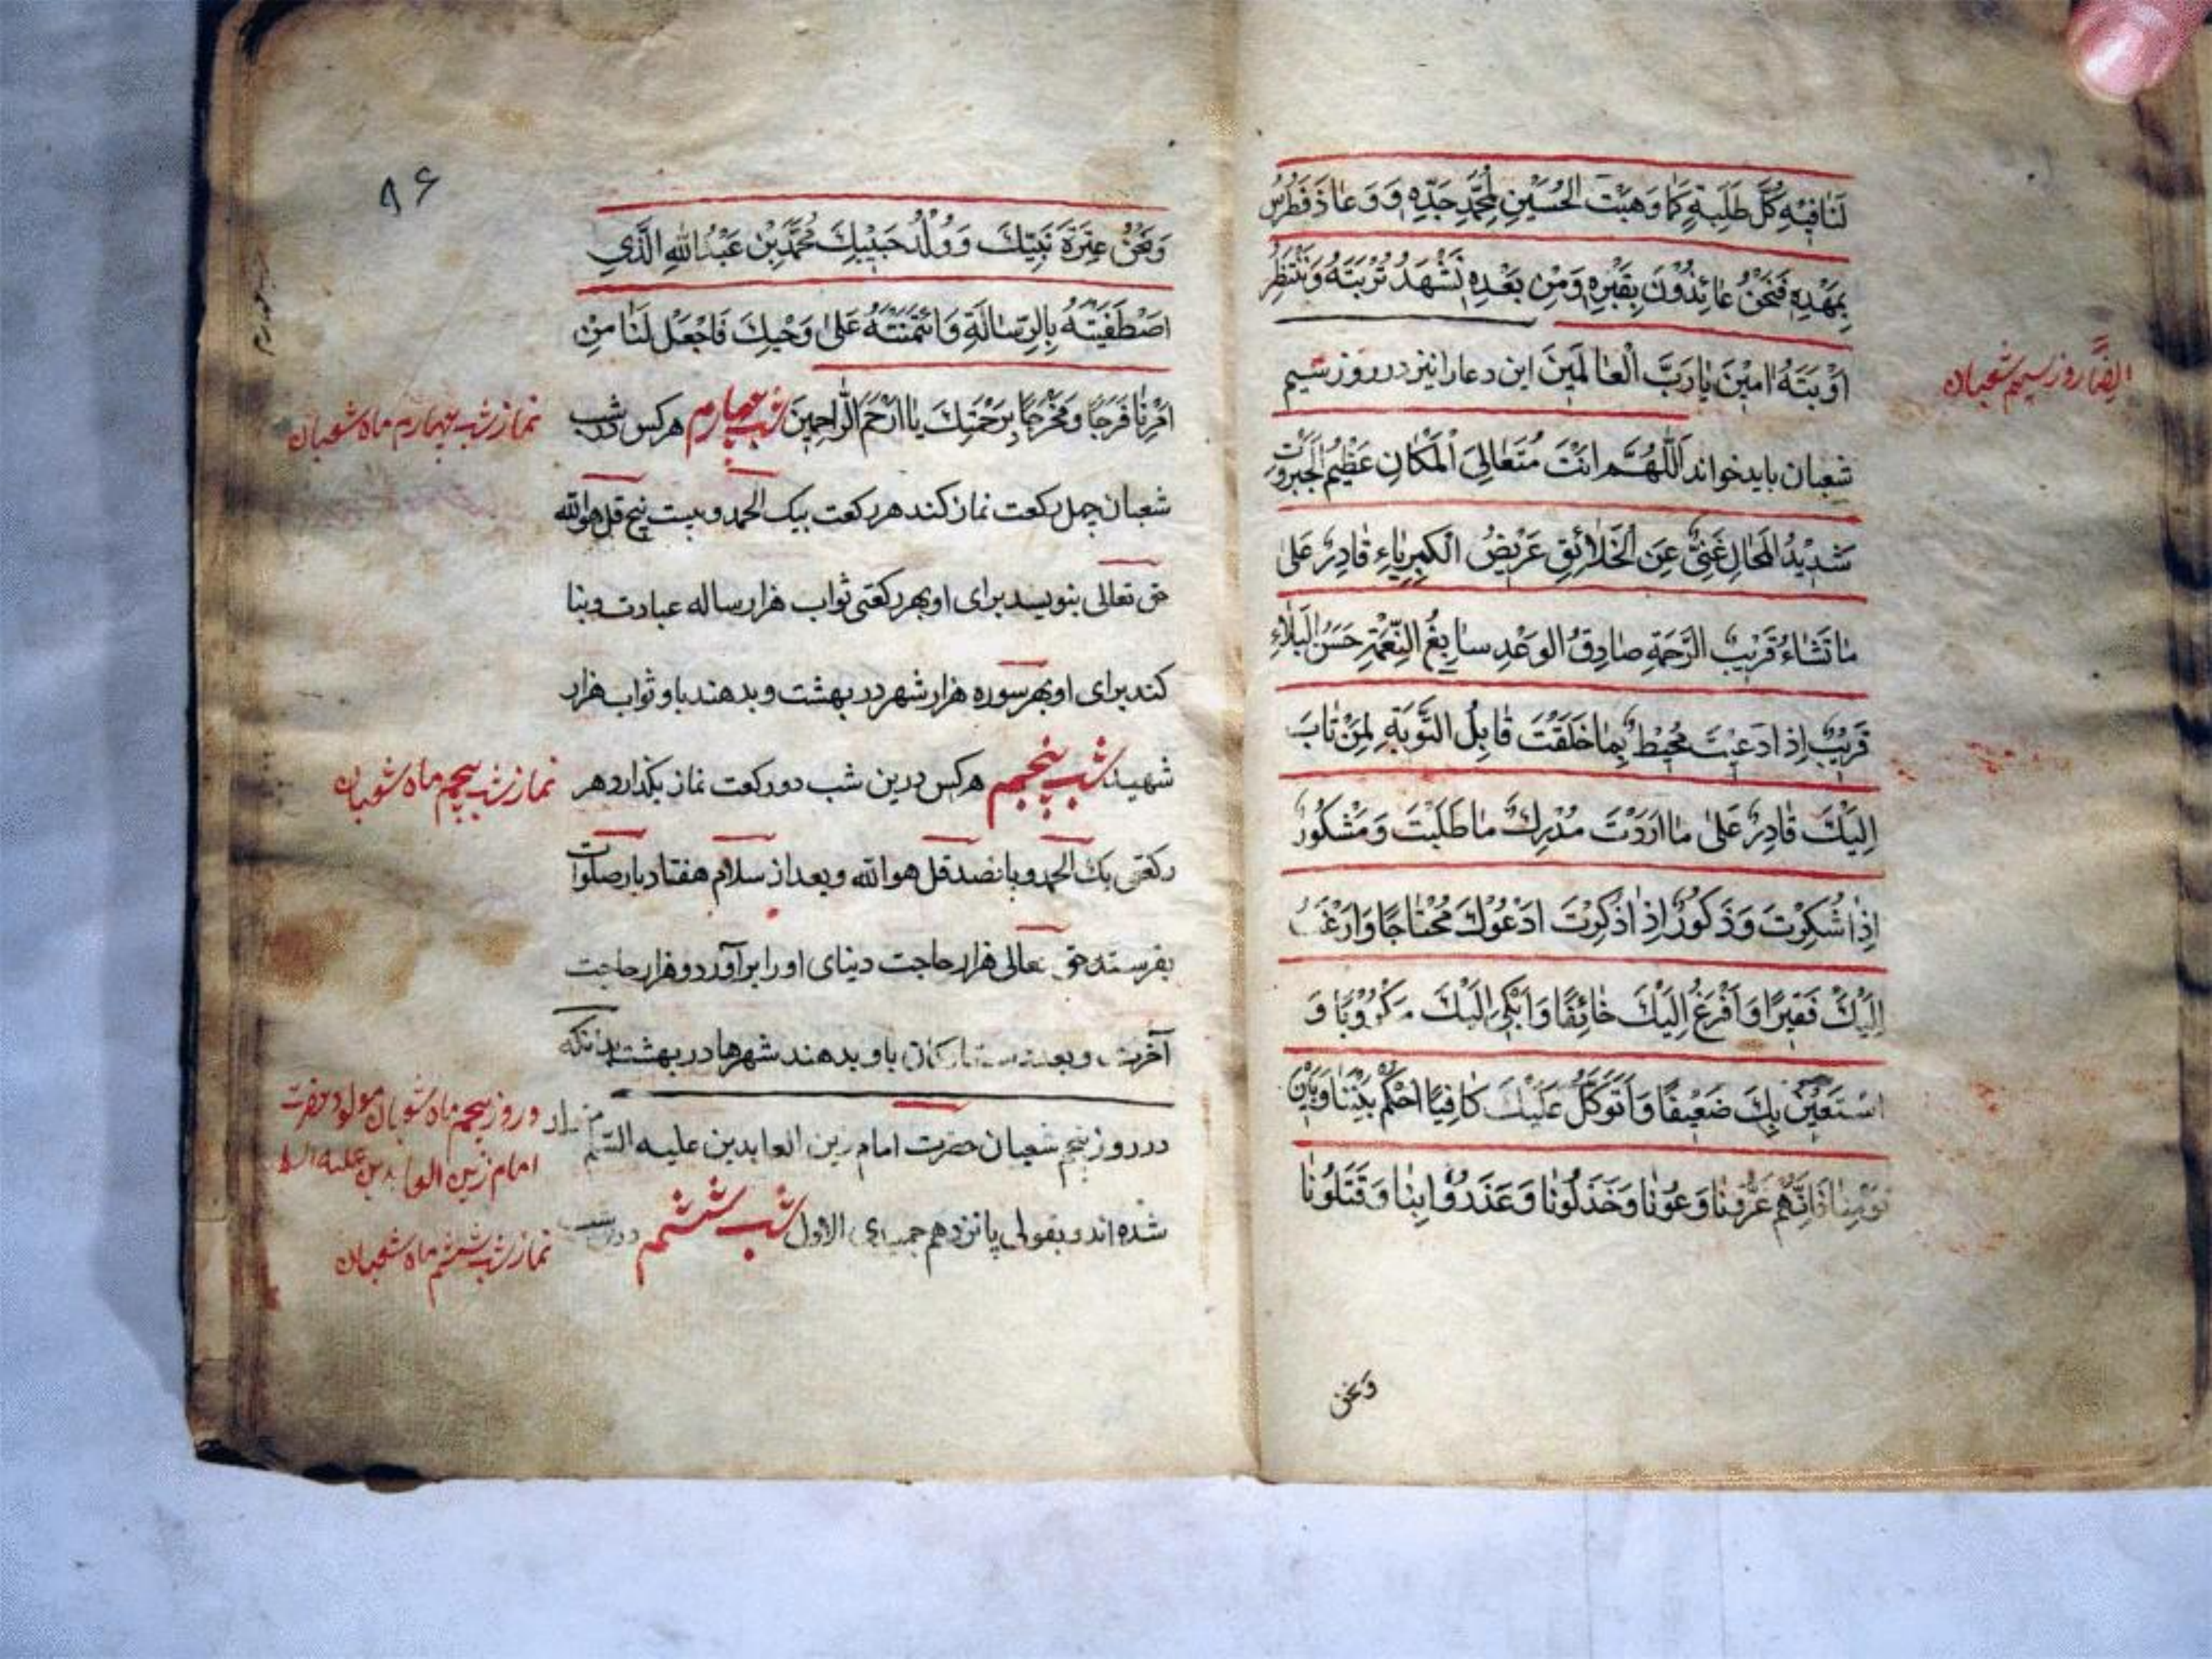 لَنَا فِيهِ كُلَّ طَلِبَةٍ كَمَا وَهَبْتَ الْحُسَيْنِ لِمُحَمَّدٍ جَدِّهِ وَ وَعَاذَ فُطْرُسُ
بِمَهْدِهِ فَنَحْنُ عَائِذُونَ بِقَبْرِهِ وَمِنْ بَعْدِهِ نَشْهَدُ تُرْبَتَهُ وَنَنْتَظِرُ
اَوْبَتَهُ امِينَ يَا رَبَّ الْعَالَمِينَ این دعا را نیز در روز سیم
ایضاً روز سیم شعبان
شعبان باید خواند اَللّهُمَّ اَنْتَ مُتَعَالِىَ الْمَكَانِ عَظِيمُ الْجَبَرُوتِ
شَدِيدُ الْمَحَالِ غَنِىٌّ عَنِ الْخَلَائِقِ عَرِيضُ الْكِبْرِيَاءِ قَادِرٌ عَلَى
مَا تَشَاءُ قَرِيبُ الرَّحْمَةِ صَادِقُ الوَعْدِ سَابِغُ النِّعْمَةِ حَسَنُ الْبَلَاءِ
قَرِيبٌ اِذَا دُعِيتَ مُحِيطٌ بِمَا خَلَقْتَ قَابِلُ التَّوْبَةِ لِمَنْ تَابَ
اِلَيْكَ قَادِرٌ عَلَى مَا اَرَدْتَ مُدْرِكٌ مَا طَلَبْتَ وَمَشْكُورٌ
اِذَا شُكِرْتَ وَذَكُورٌ اِذَا ذُكِرْتَ اَدْعُوكَ مُحْتَاجًا وَاَرْغَبُ
اِلَيْكَ فَقِيرًا وَاَفْزَعُ اِلَيْكَ خَائِفًا وَاَبْكِى اِلَيْكَ مَكْرُوبًا وَ
اَسْتَعِينُ بِكَ ضَعِيفًا وَاَتَوَكَّلُ عَلَيْكَ كَافِيًا اُحْكُمْ بَيْنَنَا وَبَيْنَ
قَوْمِنَا فَاِنَّهُمْ غَرُّونَا وَ وَخَذَلُونَا وَغَدَرُوا بِنَا وَقَتَلُونَا
ونحن
۸۶
وَنَحْنُ عِتْرَةُ نَبِيِّكَ وَ وُلْدُ حَبِيبِكَ مُحَمَّدِ بْنِ عَبْدِ اللهِ الَّذِي
اصْطَفَيْتَهُ بِالرِّسَالَةِ وَائْتَمَنْتَهُ عَلَى وَحْيِكَ فَاجْعَلْ لَنَا مِنْ
اَمْرِنَا فَرَجًا وَمَخْرَجًا بِرَحْمَتِكَ يَا اَرْحَمَ الرَّاحِمِينَ شب چهارم هرکس در شب
نماز شب چهارم ماه شعبان
شعبان چهل رکعت نماز کند هر رکعت بیک الحمد و بیست پنج قل هوالله
حق تعالی بنویسد برای او بهر رکعتی ثواب هزار ساله عبادت و بنا
کند برای او بهر سوره هزار شهر در بهشت و بدهند باو ثواب هزار
شهید شب پنجم هرکس درین شب دو رکعت نماز بکذارد هر
نماز شب پنجم ماه شعبان
رکعتی یک الحمد و پانصد قل هوالله و بعد از سلام هفتاد بار صلوات
بفرستد حق تعالی هزار حاجت دنیای او را برآورد و هزار حاجت
آخرت و بعدد باو بدهند شهرها در بهشت بدانکه
در روز پنجم شعبان حضرت امام زین العابدین علیه السلم
در روز پنجم ماه شعبان مولود حضرت
امام زین العابدین علیه السلم
شده اند و بقولی پانزدهم جمیدی الاول شب ششم درین شب
نماز شب ششم ماه شعبان